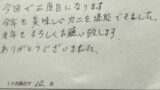 今回で二度目になります
今年も美味しいカニを堪能できました。
来年もよろしくお願い致します。
ありがとうございました。